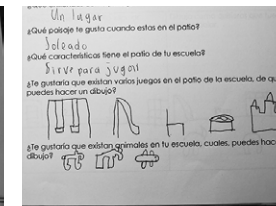 Un lugar
¿Qué paisaje te gusta cuando estas en el patio?
Soleado
¿Qué características tiene el patio de tu escuela?
Sirve para jugar
¿Te gustaría que existan varios juegos en el patio de la escuela, de qu
puedes hacer un dibujo?
¿Te gustaría que existan animales en tu escuela, cuales, puedes hac
dibujo?